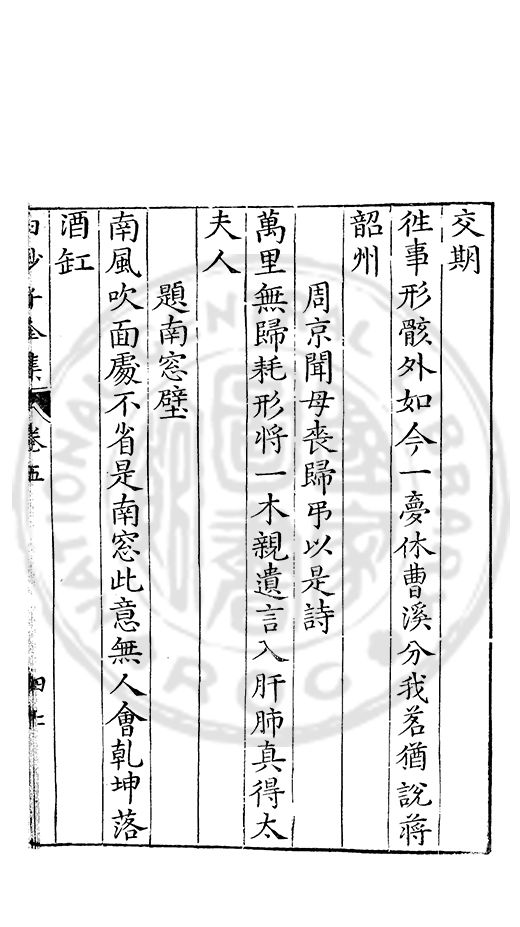 交期
徃事形骸外如今一夢休曹溪分我茗猶說蔣
韶州
周京聞母喪歸弔以是詩
萬里無歸耗形將一木親遺言入肝肺真得太
夫人
題南窓壁
南風吹面處不省是南窓此意無人會乾坤落
酒缸
白沙子全集 卷五 四十二
NATIONAL CENTRAL LIBRARY